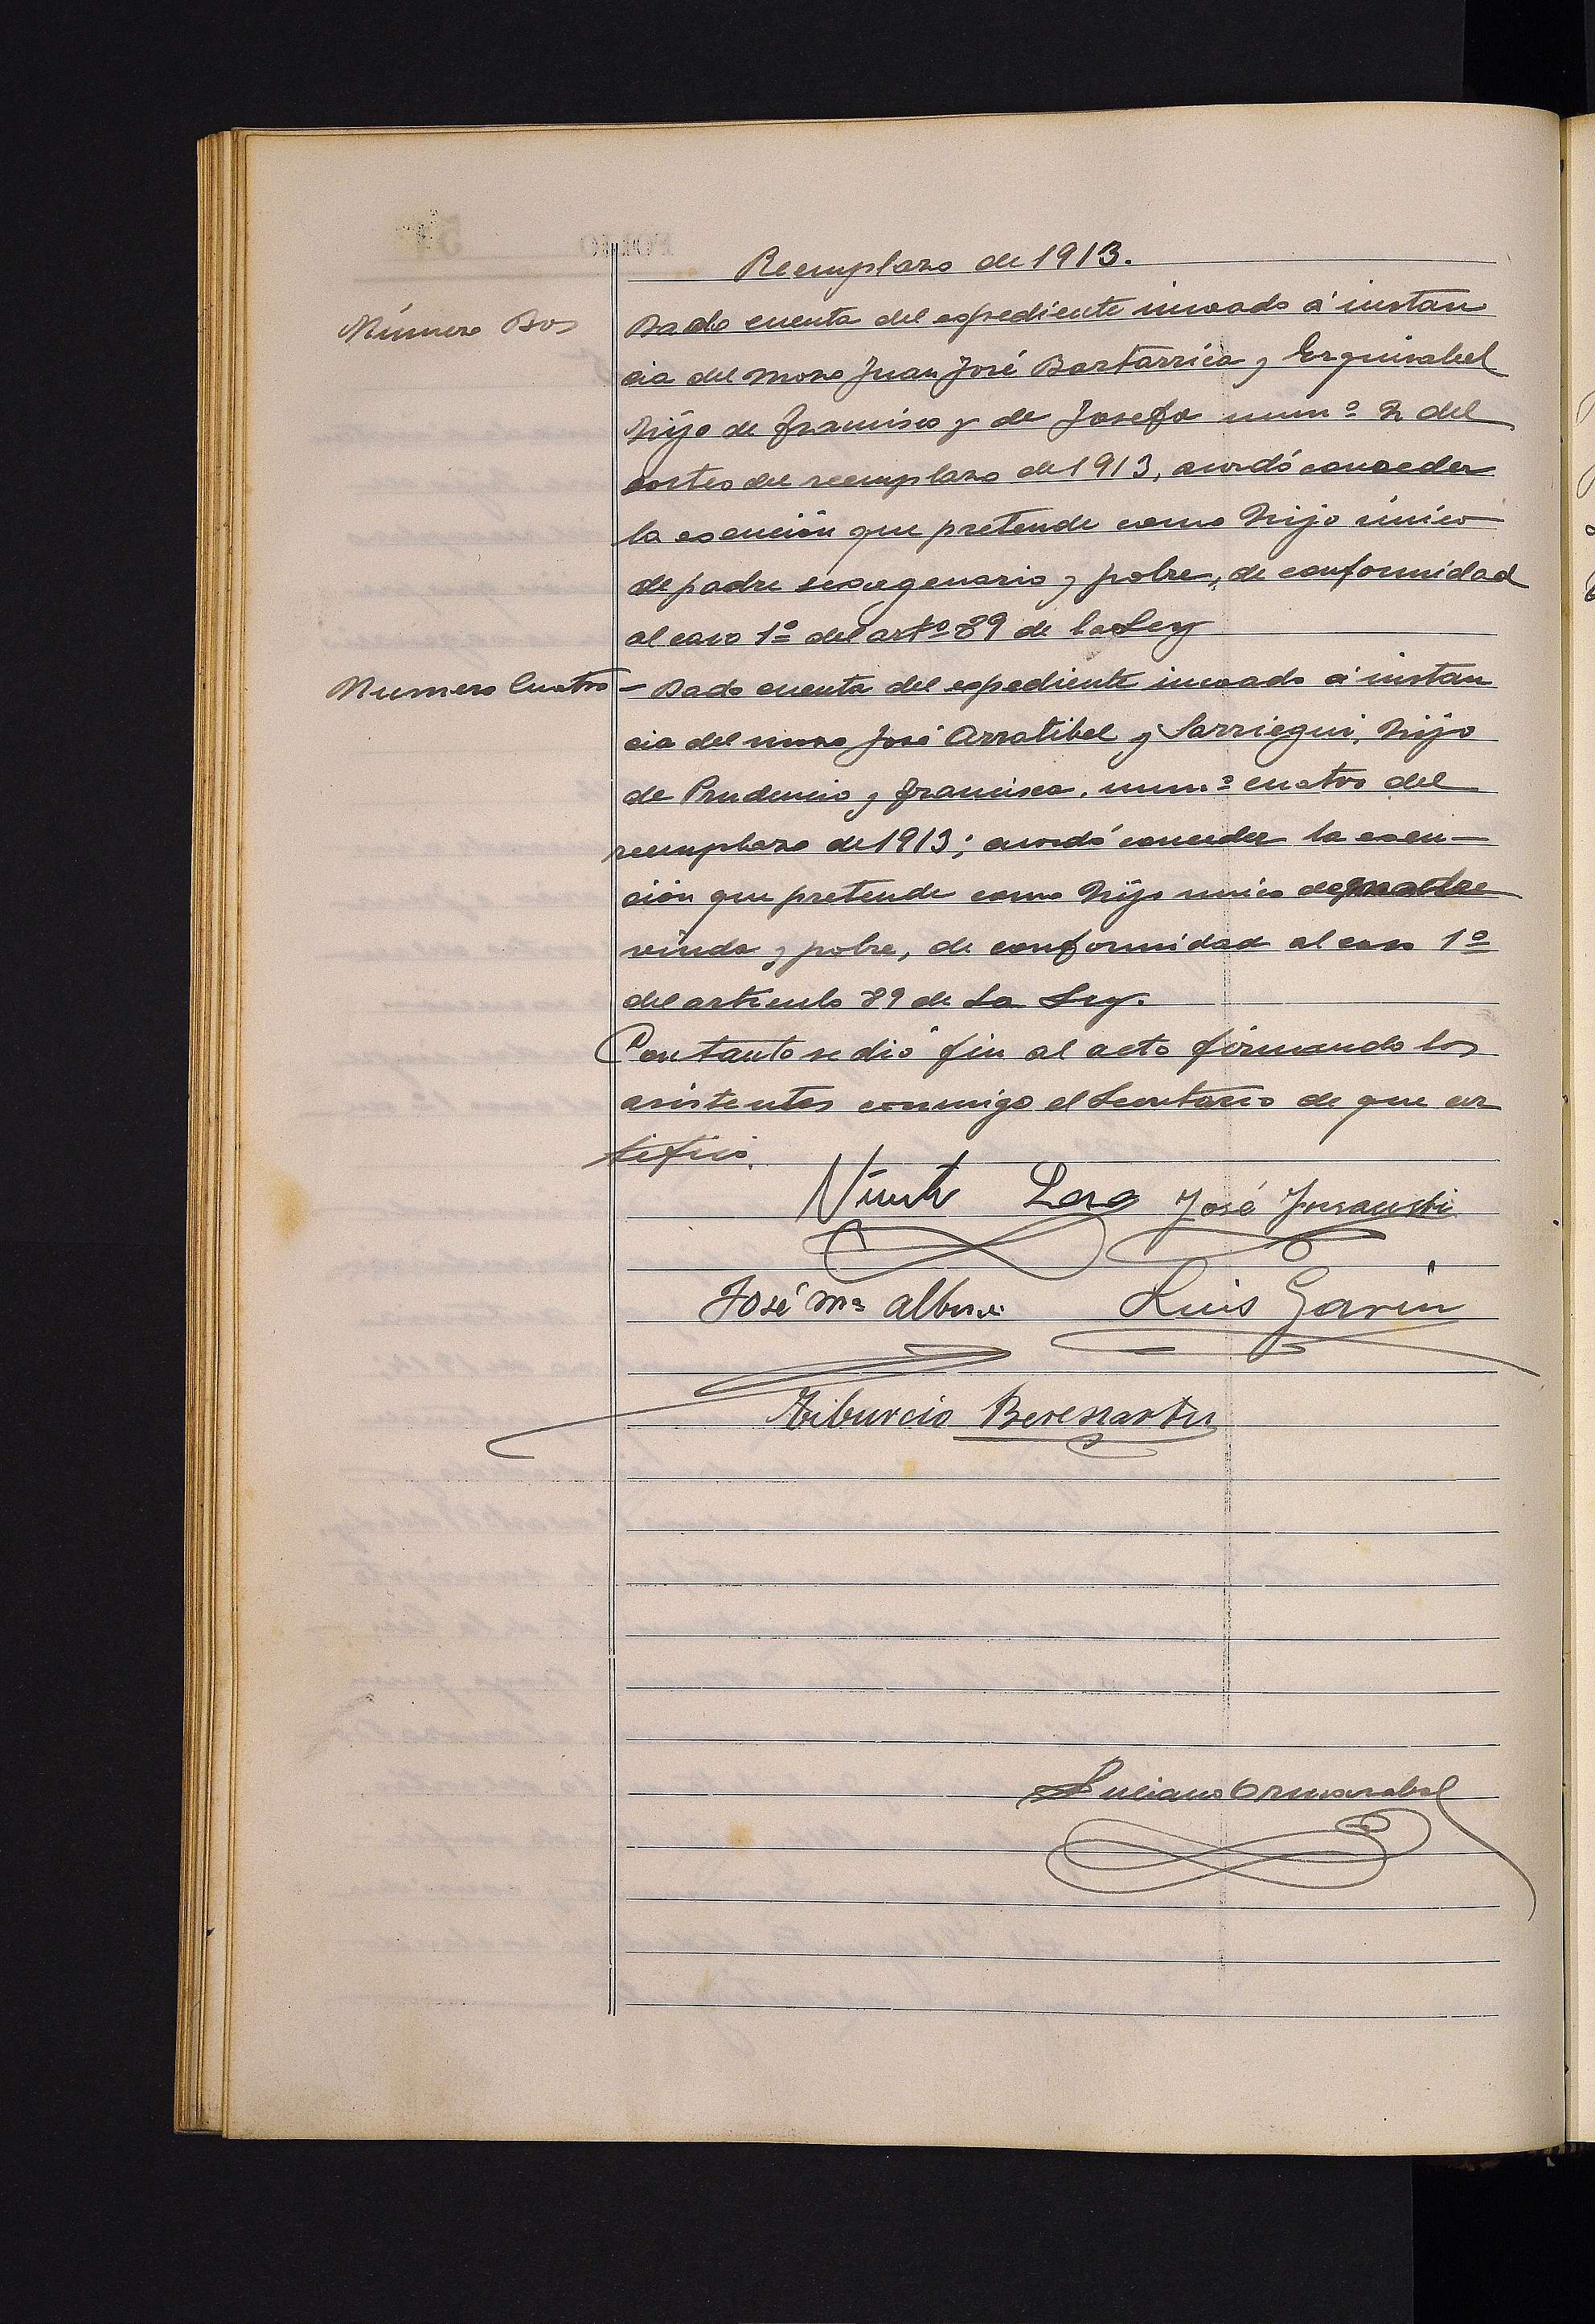 Reemplazo de 1913.
Número Dos
Dado cuenta del espediente incoado á instan
cia del mozo Juan José Bastarrica y Erquizabel
hijo de Francisco y de Josefa numº 2 del
sorteo del reemplazo de 1913, acordó conceder
la esención que pretende como hijo único
de padre sexagenario y pobre, de conformidad
al caso 1º del artº 89 de la Ley
Numero Cuatro
- Dado cuenta del espediente incoado á instan
cia del mozo José Arratibel y Sarriegui, hijo
de Prudencio y Francisca, numº cuatro del
reemplazo de 1913; acordó conceder la esen-
ción que pretende como hijo unico de madre
viuda y pobre, de conformidad al caso 1º
del articulo 89 de La Ley.
Con tanto se dió fin al acto firmando los
asistentes conmigo el Secretario de que cer
tifico.
José
José Mª Luis Garin
Tiburcio Beresiartu
Luciano Ormazabal